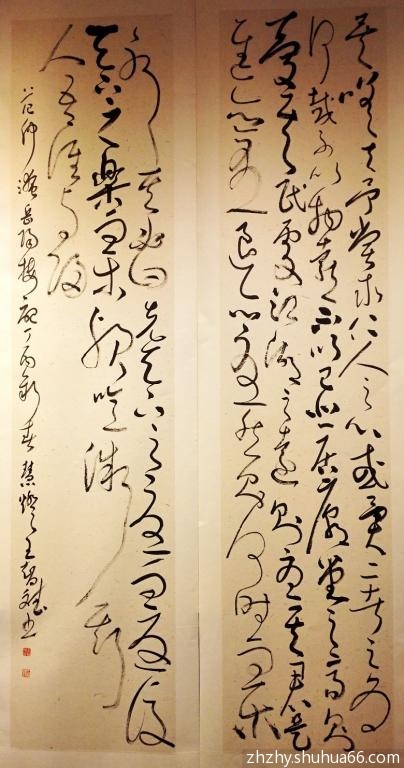 嗟夫予嘗求仁人之心或異二者之為
何哉不以物喜不以己悲居廟堂之高則
憂其民處江湖之遠則憂其君是
進亦憂退亦憂然則何時而樂
耶其必曰先天下之憂而憂後
天下之樂而樂乎噫微斯
人吾誰與歸
范仲淹岳陽樓記丁酉新春王
zhzhy.shuhua66.com